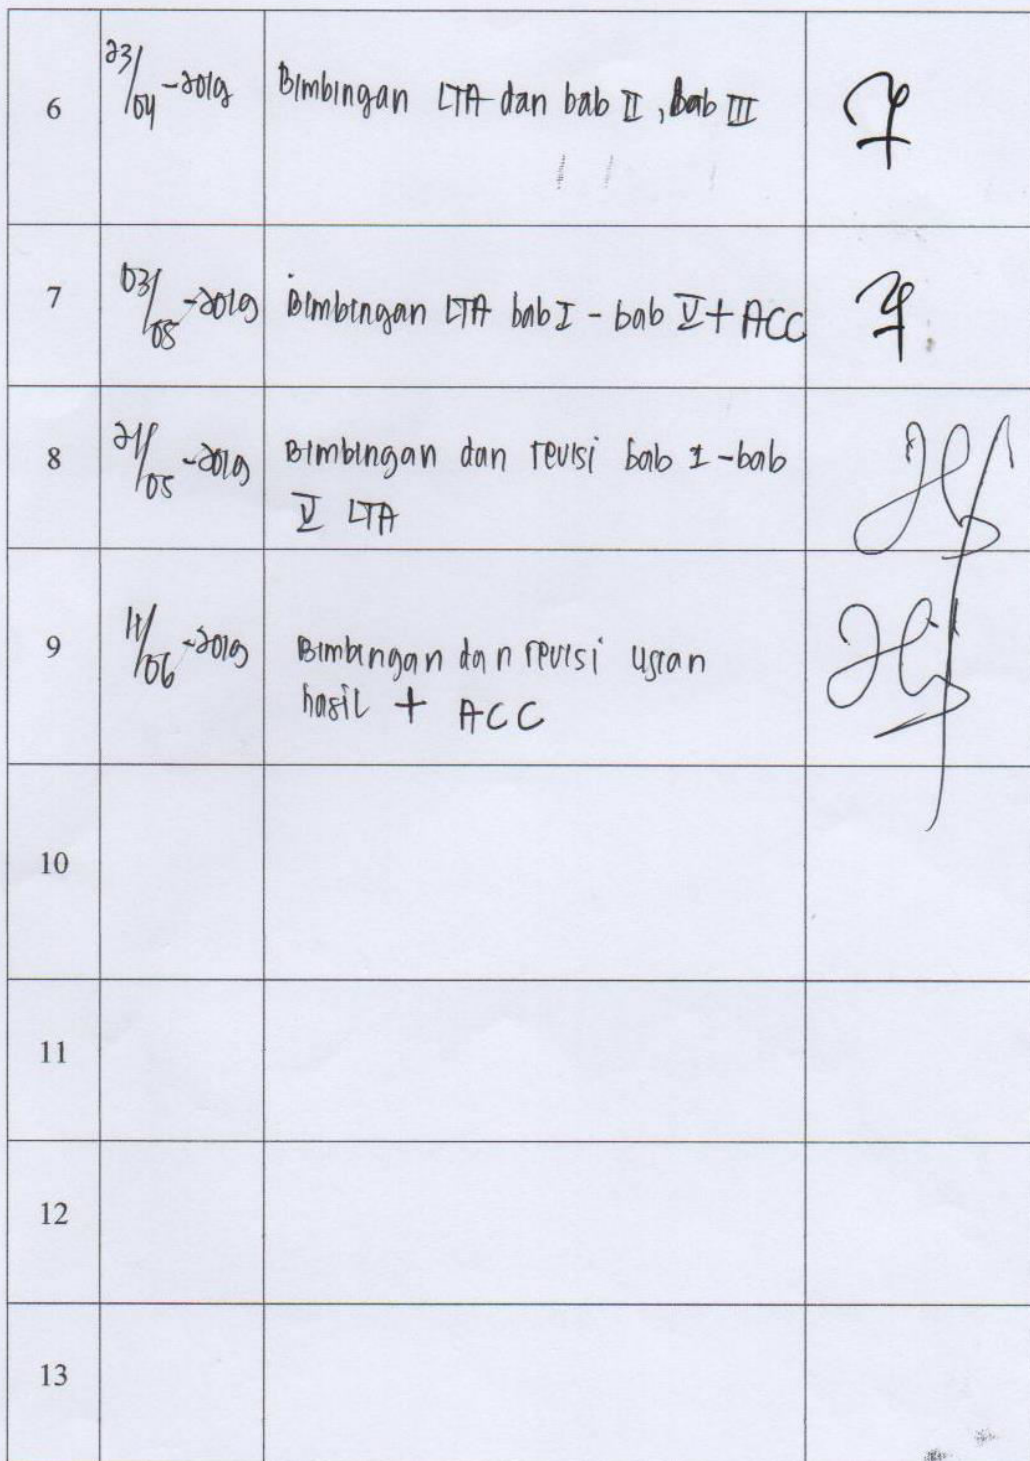 6 23/04-2019 Bimbingan LTA dan bab II, Bab III
7 03/05-2019 Bimbingan LTA bab I - bab V + ACC
8 21/05-2019 Bimbingan dan revisi bab 1 - bab
V LTA
9 11/06-2019 Bimbingan dan revisi
hasil + ACC
10
11
12
13